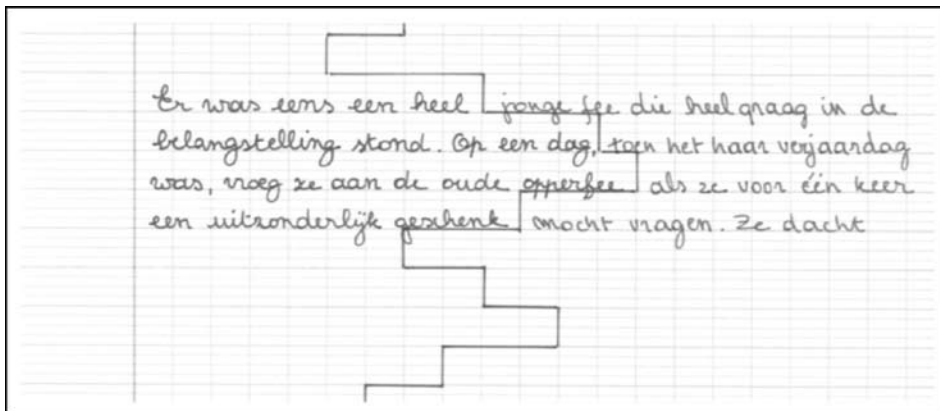 Er was eens een heel jonge fee die heel graag in de
belangstelling stond. Op een dag, toen het haar verjaardag
was, vroeg ze aan de oude opperfee als ze voor één keer
een uitzonderlijk geschenk mocht vragen. Ze dacht